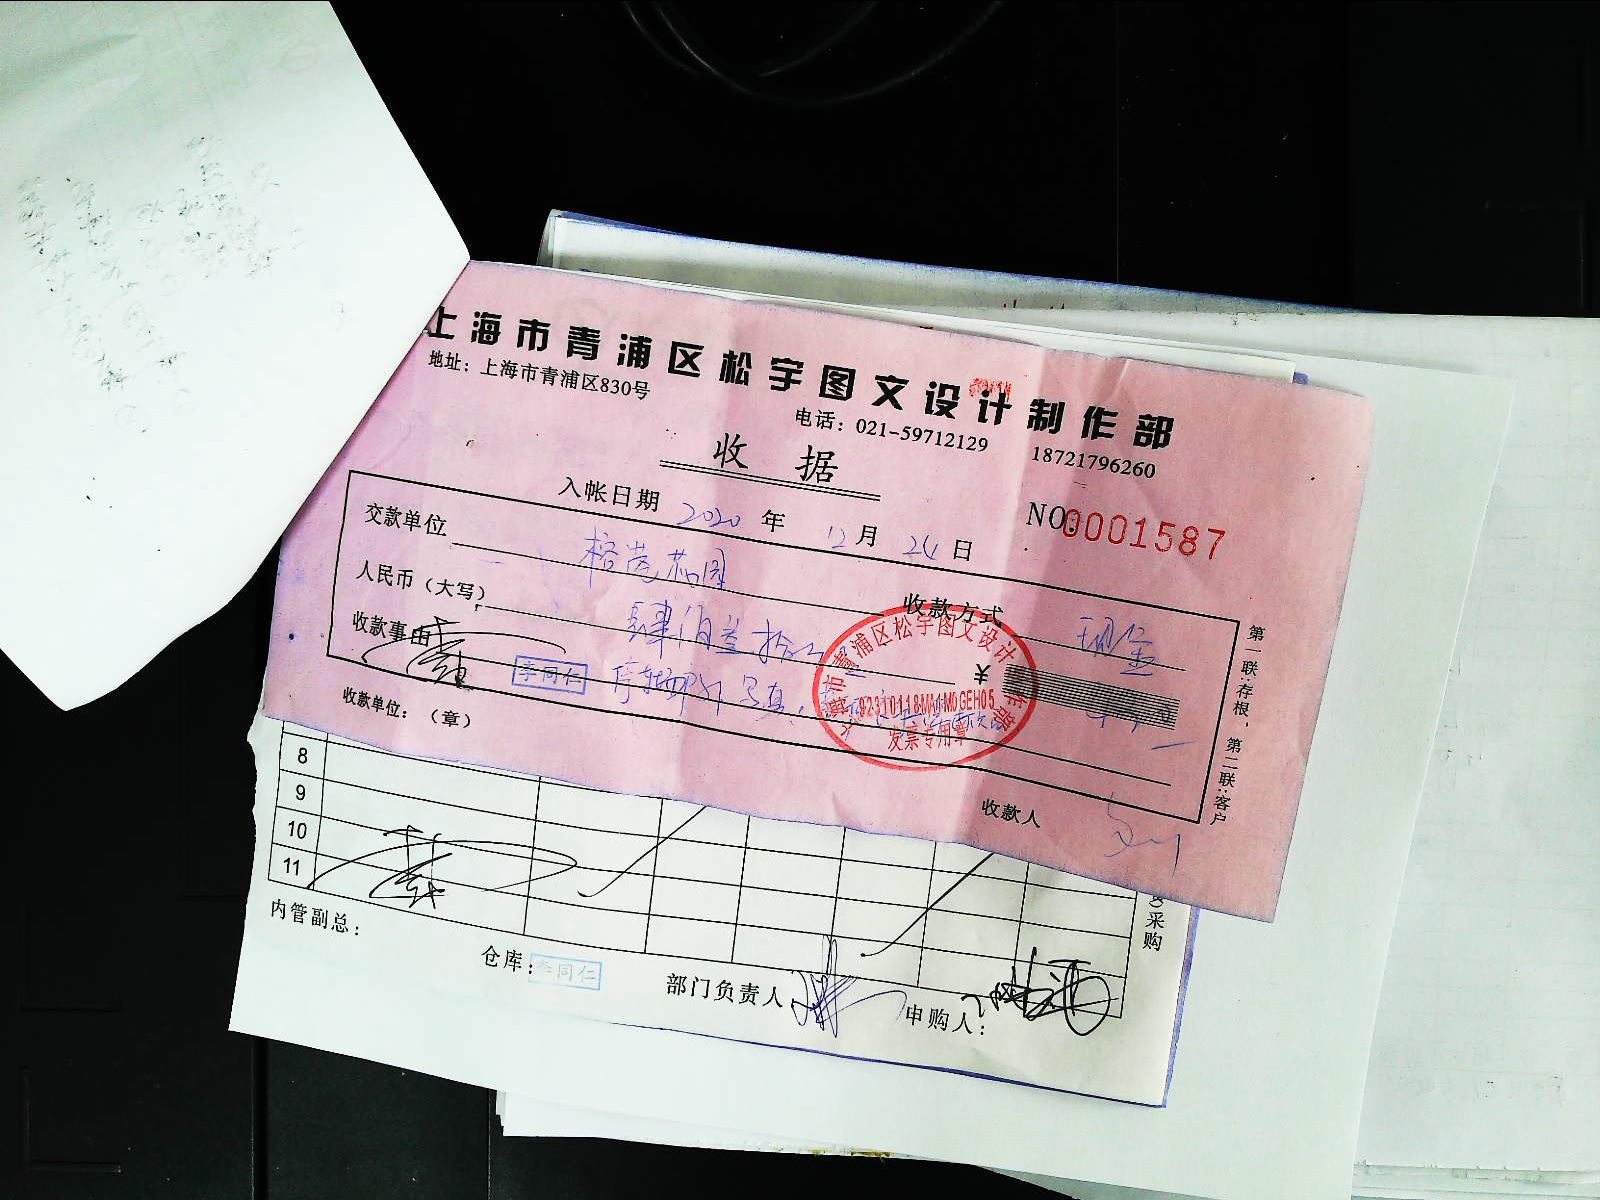 上海市青浦区松宇图文设计制作部
地址：上海市青浦区830号
电话：021-59712129 18721796260
收 据
入帐日期 2020 年 12 月 24 日
NO.0001587
交款单位
收款方式 现金
人民币（大写）肆佰叁拾
¥
收款事由 停车场 写真
李同仁
青浦区松宇图文设计
92310118MA1M0GEH05
发票专用章
收款单位：（章）
收款人
第一联：存根，第二联：客户
8
9
10
11
采购
内管副总：
仓库：李同仁
部门负责人
申购人：